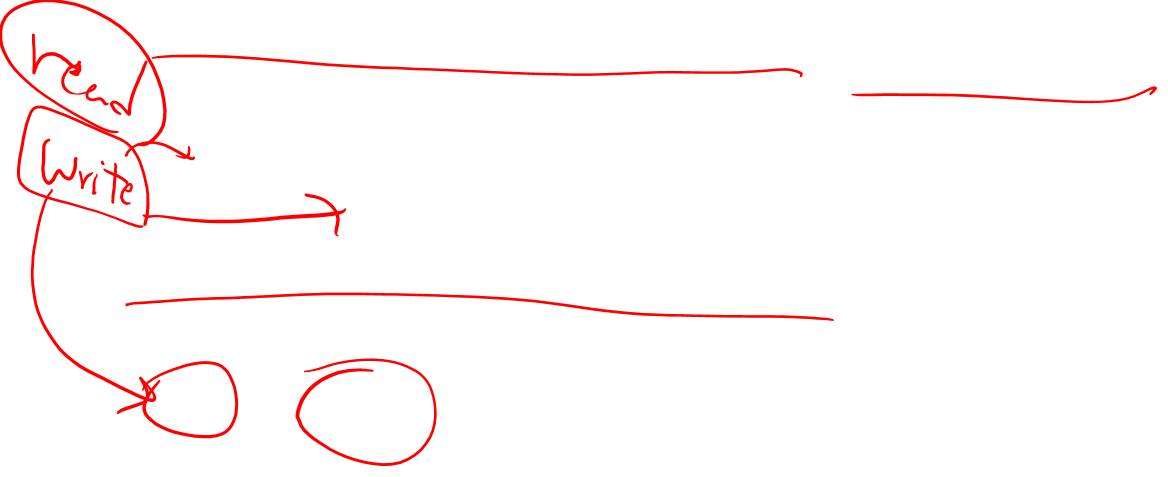 read
Write